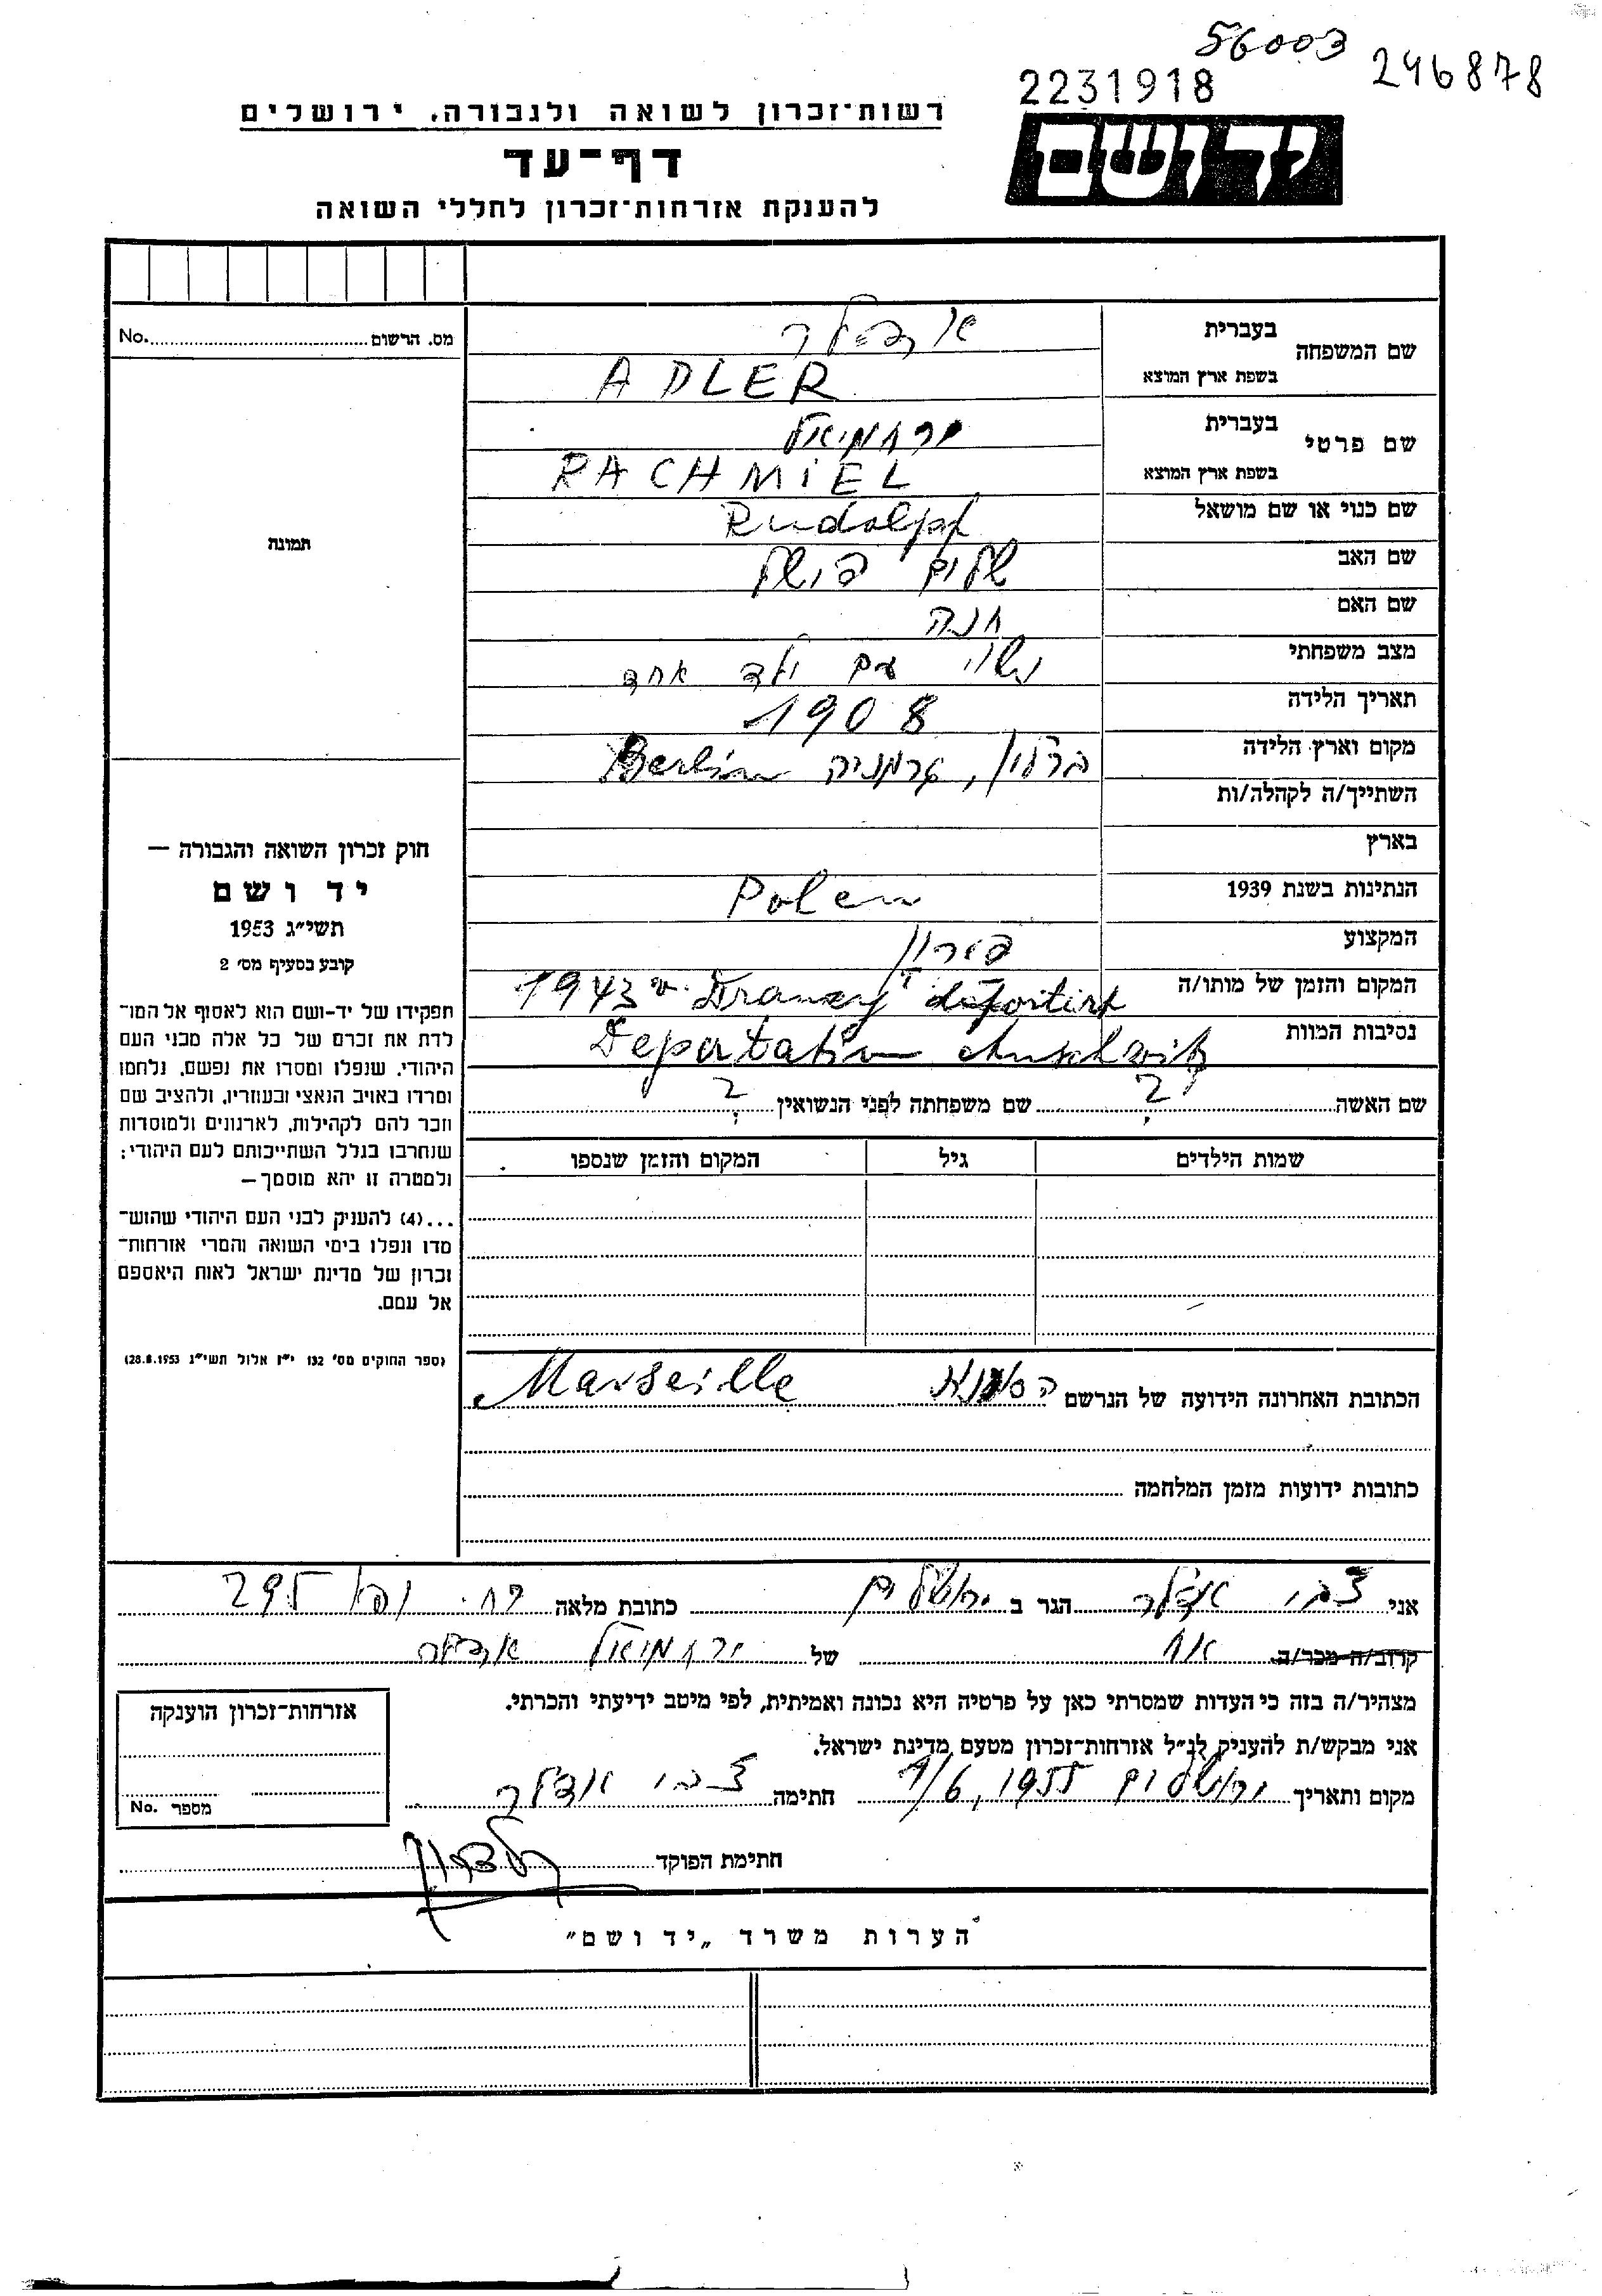 56003
246878
2231918
יד ושם
רשות־זכרון לשואה ולגבורה, ירושלים
דף־עד
להענקת אזרחות־זכרון לחללי השואה
שם המשפחה בעברית אדלר
בשפת ארץ המוצא ADLER
שם פרטי בעברית ירחמיאל
בשפת ארץ המוצא RACHMiEL
שם כנוי או שם מושאל Rudolph
שם האב שלום פישל
שם האם חנה
מצב משפחתי נשוי עם ילד אחד
תאריך הלידה 1908
מקום וארץ הלידה ברלין, גרמניה Berlin
השתייך/ה לקהלה/ות
בארץ
הנתינות בשנת 1939 Polen
המקצוע
המקום והזמן של מותו/ה 1943 v. Drancy deportiert
נסיבות המוות Deportation Auschwitz
שם האשה ? שם משפחתה לפני הנשואין ?
שמות הילדים גיל המקום והזמן שנספו
הכתובת האחרונה הידועה של הנרשם Marseille
כתובות ידועות מזמן המלחמה
מס. הרשום No.
תמונה
חוק זכרון השואה והגבורה —
יד ושם
תשי״ג 1953
קובע בסעיף מס׳ 2
תפקידו של יד-ושם הוא לאסוף אל המו־
לדת את זכרם של כל אלה מבני העם
היהודי, שנפלו ומסרו את נפשם, נלחמו
ומרדו באויב הנאצי ובעוזריו, ולהציב שם
וזכר להם לקהילות, לארגונים ולמוסדות
שנחרבו בגלל השתייכותם לעם היהודי;
ולמטרה זו יהא מוסמך—
...(4) להעניק לבני העם היהודי שהוש־
מדו ונפלו בימי השואה והמרי אזרחות־
זכרון של מדינת ישראל לאות היאספם
אל עמם.
(ספר החוקים מס׳ 132 י״ז אלול תשי״ג 28.8.1953)
אני צבי אדלר הגר ב ירושלים כתובת מלאה 295
קרוב/ה מכר/ה אח של ירחמיאל אדלר
מצהיר/ה בזה כי העדות שמסרתי כאן על פרטיה היא נכונה ואמיתית, לפי מיטב ידיעתי והכרתי.
אני מבקש/ת להעניק לנ״ל אזרחות־זכרון מטעם מדינת ישראל.
מקום ותאריך ירושלים 9/6, 1955 חתימה צבי אדלר
חתימת הפוקד
אזרחות־זכרון הוענקה
מספר No.
הערות משרד „יד ושם״